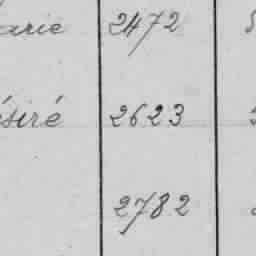 arie 2472
ésiré 2623
2782